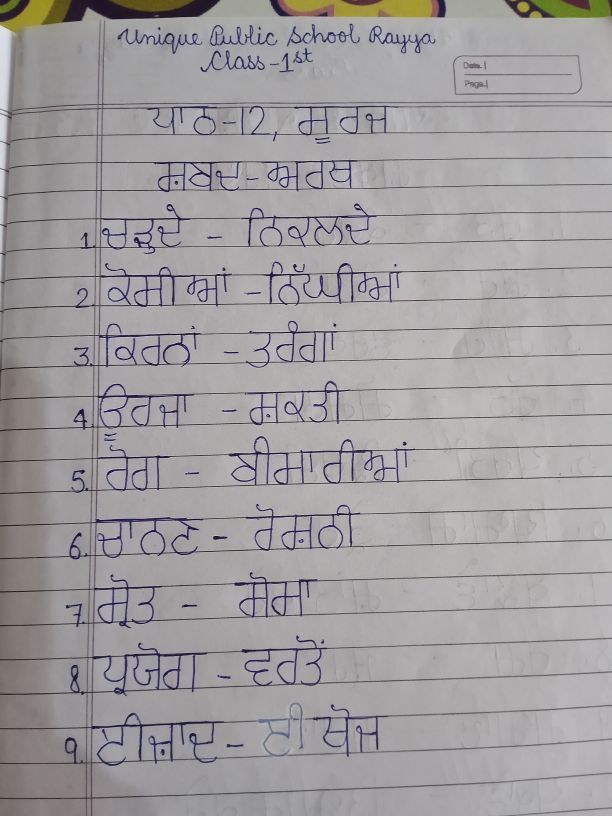 Unique Public School Rayya
Class-1st
Date.
Page.
ਪਾਠ-12, ਸੂਰਜ
ਸ਼ਬਦ-ਅਰਥ
1. ਚੜ੍ਹਦੇ - ਨਿਕਲਦੇ
2. ਕੋਸੀਆਂ - ਨਿੱਘੀਆਂ
3. ਕਿਰਨਾਂ - ਤਰੰਗਾਂ
4. ਊਰਜਾ - ਸ਼ਕਤੀ
5. ਰੋਗ - ਬੀਮਾਰੀਆਂ
6. ਚਾਨਣ - ਰੋਸ਼ਨੀ
7. ਸ੍ਰੋਤ - ਸੋਮਾ
8. ਪ੍ਰਯੋਗ - ਵਰਤੋਂ
9. ਈਜ਼ਾਦ - ਖੋਜ